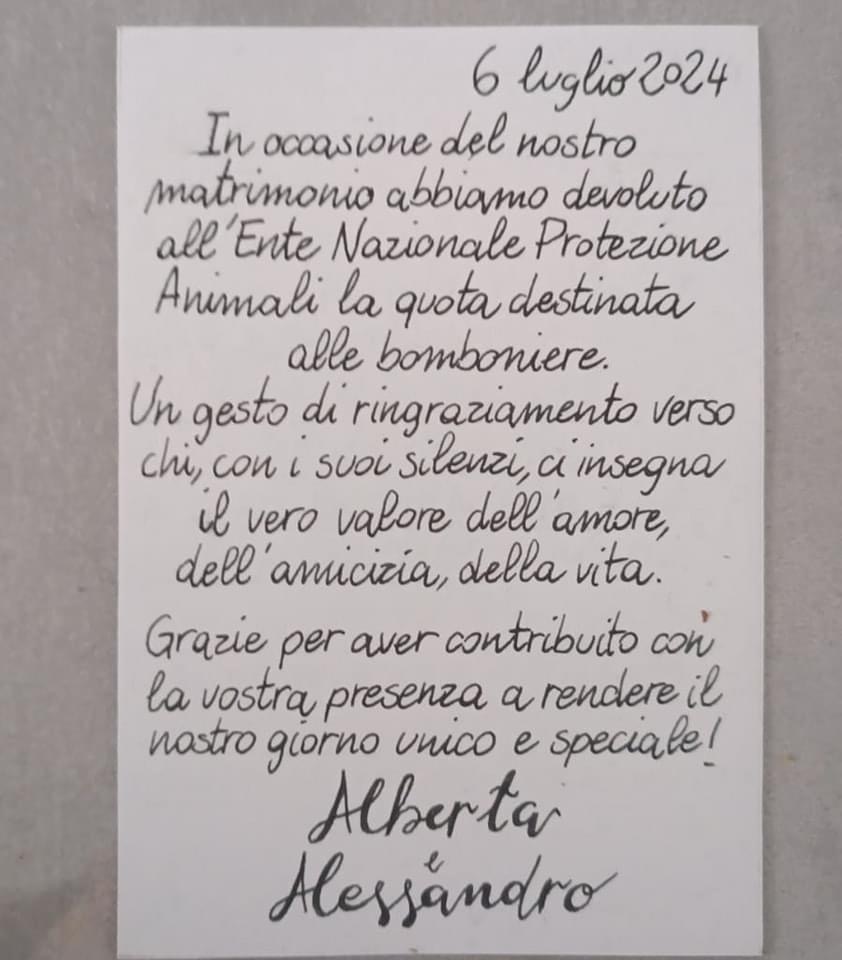 6 luglio 2024
In occasione del nostro
matrimonio abbiamo devoluto
all'Ente Nazionale Protezione
Animali la quota destinata
alle bomboniere.
Un gesto di ringraziamento verso
chi, con i suoi silenzi, ci insegna
il vero valore dell'amore,
dell'amicizia, della vita.
Grazie per aver contribuito con
la vostra presenza a rendere il
nostro giorno unico e speciale!
Alberta
e
Alessandro